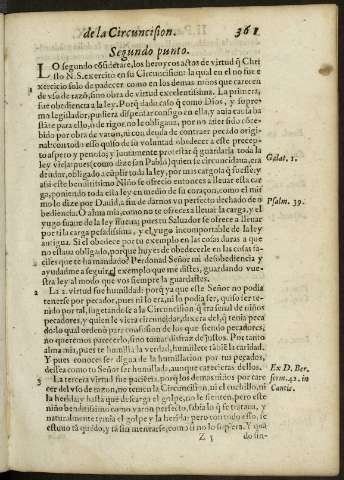 de la Circuncision. 361
Segundo punto.
LO segundo cõsiderare, los heroycos actos de virtud q̃ Chri
sto N.S. exercito en su Circuncision: la qual en el no fue e
xercicio solo de padecer como en los demas niños que carecen
de vso de razõ, sino obra de virtud excelentissima. La primera,
fue obediencia a la ley. Porq̃ dado caso q̃ como Dios, y supre-
mo legislador, pudiera dispensar consigo en ella, y auia causa ba
stãte para ello, o de rigor no le obligaua, por no auer sido cõce-
bido por obra de varon, ni con deuda de contraer pecado origi-
nal: con todo esso quiso de su voluntad obedecer a este precep-
to aspero y penoso; y juntamente protestar q̃ guardaria toda la
ley vieja: pues (como dize san Pablo) quien se circuncidaua, era
deudor, obligado a cũplir toda la ley, por mas cargosa q̃ fuesse: y
assi este benditissimo Niño se ofrecio entonces a lleuar esta car
ga, poniendo toda esta ley en medio de su coraçon, como el mis
mo lo dize por Dauid, a fin de darnos vn perfecto dechado de o-
bediencia. O alma mia, como no te ofreces a lleuar la carga, y el
yugo suaue de la ley
por ti la carga pesadissima, y el yugo incomportable de la ley
antigua. Si el obedece por tu exemplo en las cosas duras a que
no estaua obligado, porque huyes de obedecerle en las cosas fa-
ciles que te ha mandado? Perdonad Señor mi desobediencia y
ayudadme a seguir el exemplo que me distes, guardando vue-
stra ley al modo que vos siempre la guardastes.
2 La 2. virtud fue humildad: porq̃ ya que este Señor no podia
tenerse por pecador, pues ni lo era, ni lo podia ser, quiso ser te-
nido por tal, sugetandose a la Circuncision q̃ era señal de niños
pecadores, y quien le viera circuncidar, dixera del, q̃ tenia peca
do: lo qual ordenò para confusion de los que siendo pecadores,
no queremos parecerlo, sino tomar disfraz de justos. Por tanto
alma mia, pues te humilla la verdad, humillete tãbiẽ la caridad.
Y pues conoces ser digna de la humillacion por tus pecados,
dessea como tu Señor ser humillado, aunque carecieras dellos.
3 La tercera virtud fue paciẽcia, porq̃ los demas niños por care
cer del vso de razon, no temen la Circuncision ni el cuchillo, ni
la herida; y hasta que descarga el golpe, no le sienten, pero este
niño benditissimo como varon perfecto, sabia lo q̃ se tratara, y
naturalmente temia el golpe y la herida: pero con todo esso, se
estuuo tã quedo, y tã sin menearse, como si no lo supiera. Y quã
Z 5 do sin-
Galat. 5.
Psalm. 39.
Ex D. Ber.
serm. 42. in
Cantic.